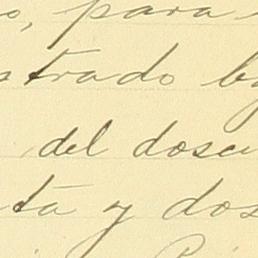 , para
strado b
del docu
ta y dos